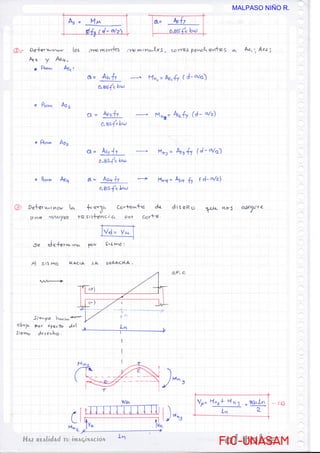 MALPASO NIÑO R.
As = Mu / Ø fy (d - a/2)
a = As fy / 0.85 f'c bw
① Determinar los momentos nominales, correspondientes a As1; As2;
As3 y As4.
• Para As1:
a = As1 fy / 0.85 f'c bw → Mn1 = As1 fy (d - a/2)
• Para As2
a = As2 fy / 0.85 f'c bw → Mn2 = As2 fy (d - a/2)
• Para As3
a = As3 fy / 0.85 f'c bw → Mn3 = As3 fy (d - a/2)
• Para As4
a = As4 fy / 0.85 f'c bw → Mn4 = As4 fy (d - a/2)
② Determinar la fuerza cortante de diseño que nos asegure
una mayor resistencia por corte.
Vd = Vu
se determina por sismo:
Al SISMO HACIA LA DERECHA.
(+)
(-)
Siempre hacia
abajo por efecto del
sismo derecha.
Ln
Mn2
Mn3
Wu
Ln
Ln
2
Haz realidad tu imaginación
FIC-UNASAM